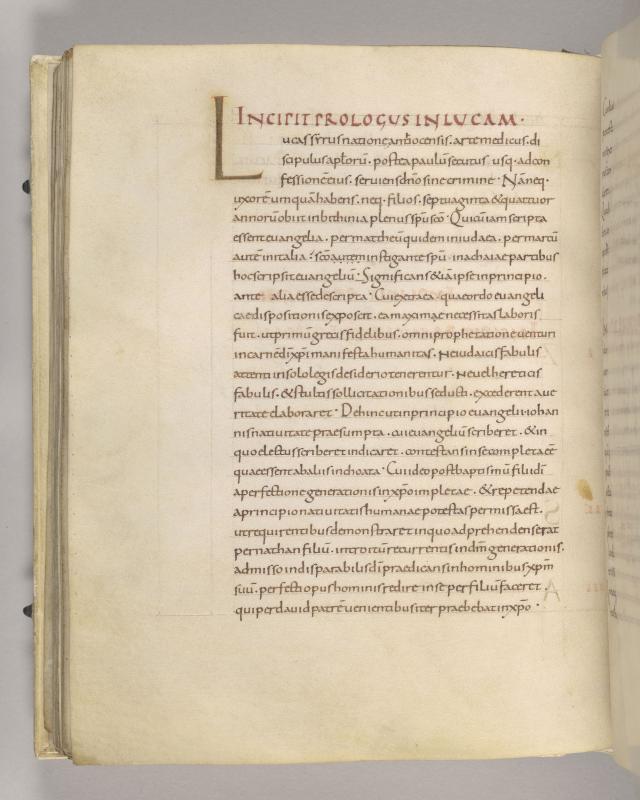 INCIPIT PROLOGUS IN LUCAM·
Lucas sÿrus natione anthiocensis. arte medicus. di
scipulus aplorū. postea paulū secutus usq; ad con
fessionē eius. seruiens dño sine crimine· Nā neq·
uxorē umquā habens. neq· filios. septuaginta & quattuor
annorū obiit in bithinia plenus spū scō· Qui cū iam scripta
essent euangelia. per mattheū quidem in iudaea. per marcū
autē in italia; scō autem instigante spū. in achaiae partibus
hoc scripsit euangeliū· Significans & iā ipse in principio.
ante alia esse descripta· Cui extra ea. quae ordo euangeli
cae dispositionis exposcit. ea maximae necessitas laboris
fuit. ut primū grecis fidelibus. omni prophetatione uenturi
in carnē di xpi manifesta humanitas. Ne iudaicis fabulis
attenti in solo legis desiderio tenerentur. Ne uel hereticis
fabulis. & stultis sollicitationibus seducti. excederent a ue
ritate elaboraret· Dehinc ut in principio euangelii iohan
nis natiuitate praesumpta. cui euangeliū scriberet. & in
quo electus scriberet indicaret. contestans in se completa eē
quae essent ab aliis inchoata· Cui ideo post baptismū filii di
a perfectione generationis in xpo impletae. & repetendae
a principio natiuitatis humanae potestas permissa est.
ut requirentibus demonstraret in quo adprehendens erat
per nathan filiū. introitū recurrentis in dm generationis.
admisso indisparabilis di praedicans in hominibus xpm
suū. perfecti opus hominis redire in se per filiū faceret.
qui per dauid patrē uenientibus iter praebebat in xpo·